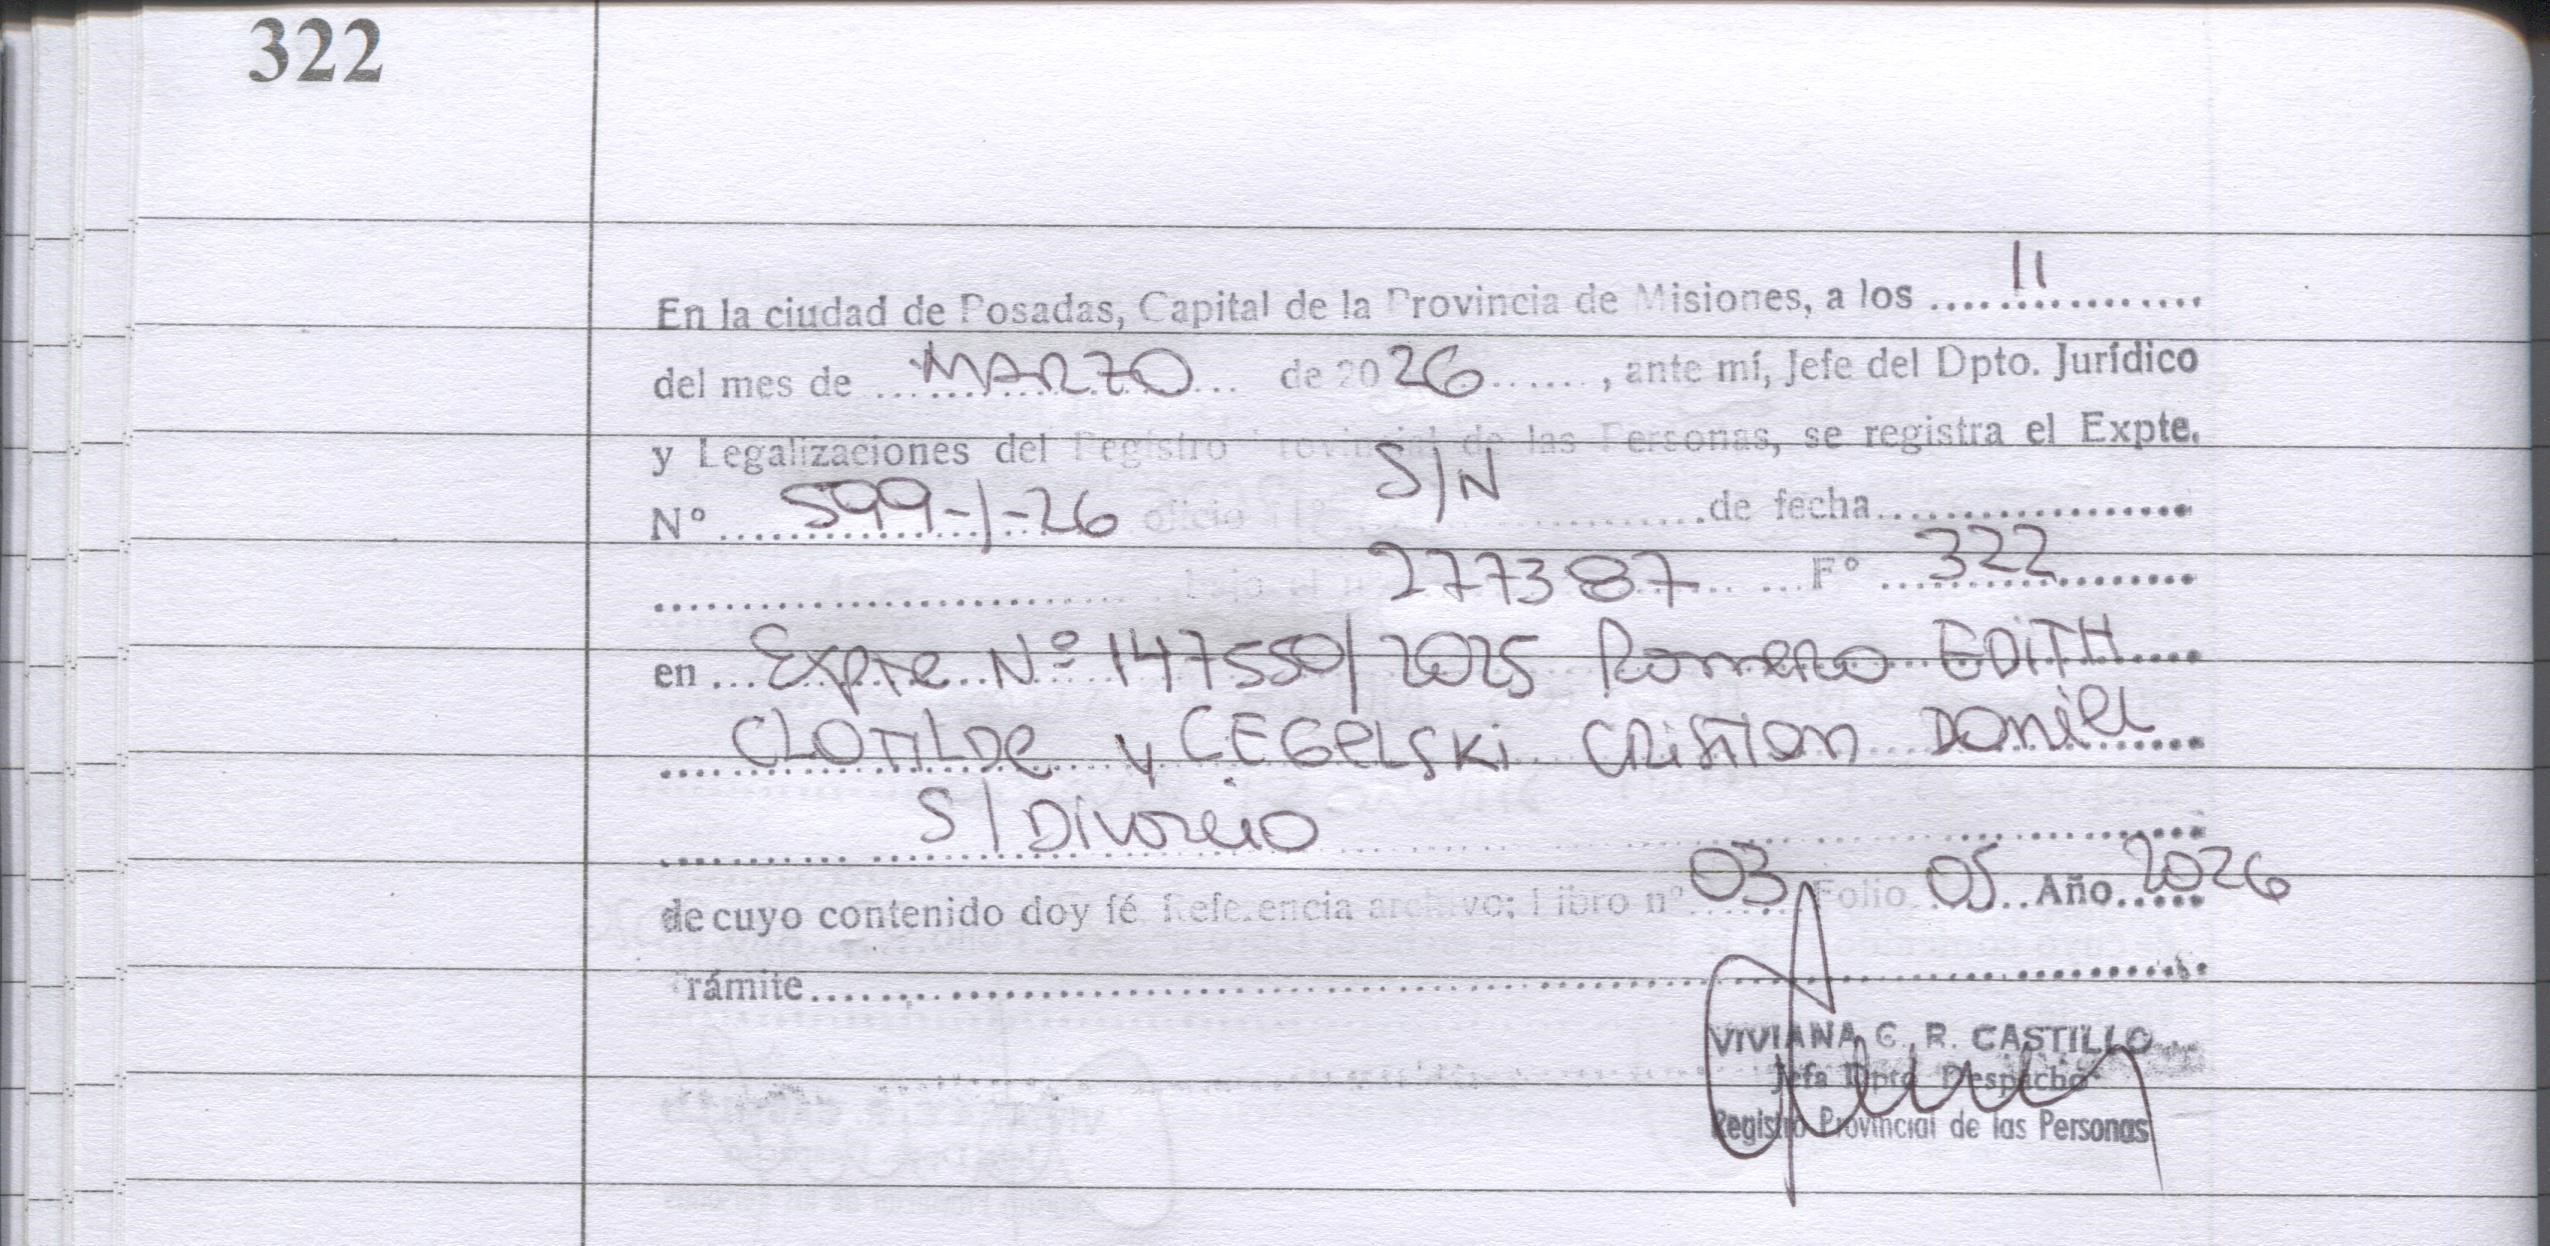 322
En la ciudad de Posadas, Capital de la Provincia de Misiones, a los ....11..........
del mes de ...MARZO... de 2026......, ante mí, Jefe del Dpto. Jurídico
y Legalizaciones del Registro Provincial de las Personas, se registra el Expte.
N° ...599-1-26 oficio N° S/N ...de fecha..................
.............................. bajo el n° 277387 ...F° ...322..........
en ...Expte N° 147550/2025 Romero EDITH
CLOTILDE y CEGELSKI CRISTIAN DANIEL
S/DIVORCIO
de cuyo contenido doy fé Referencia archivo: Libro n° 03 Folio 05 Año 2026
Trámite..............................
VIVIANA C. R. CASTILLO
Jefa Dpto. Despacho
Registro Provincial de las Personas